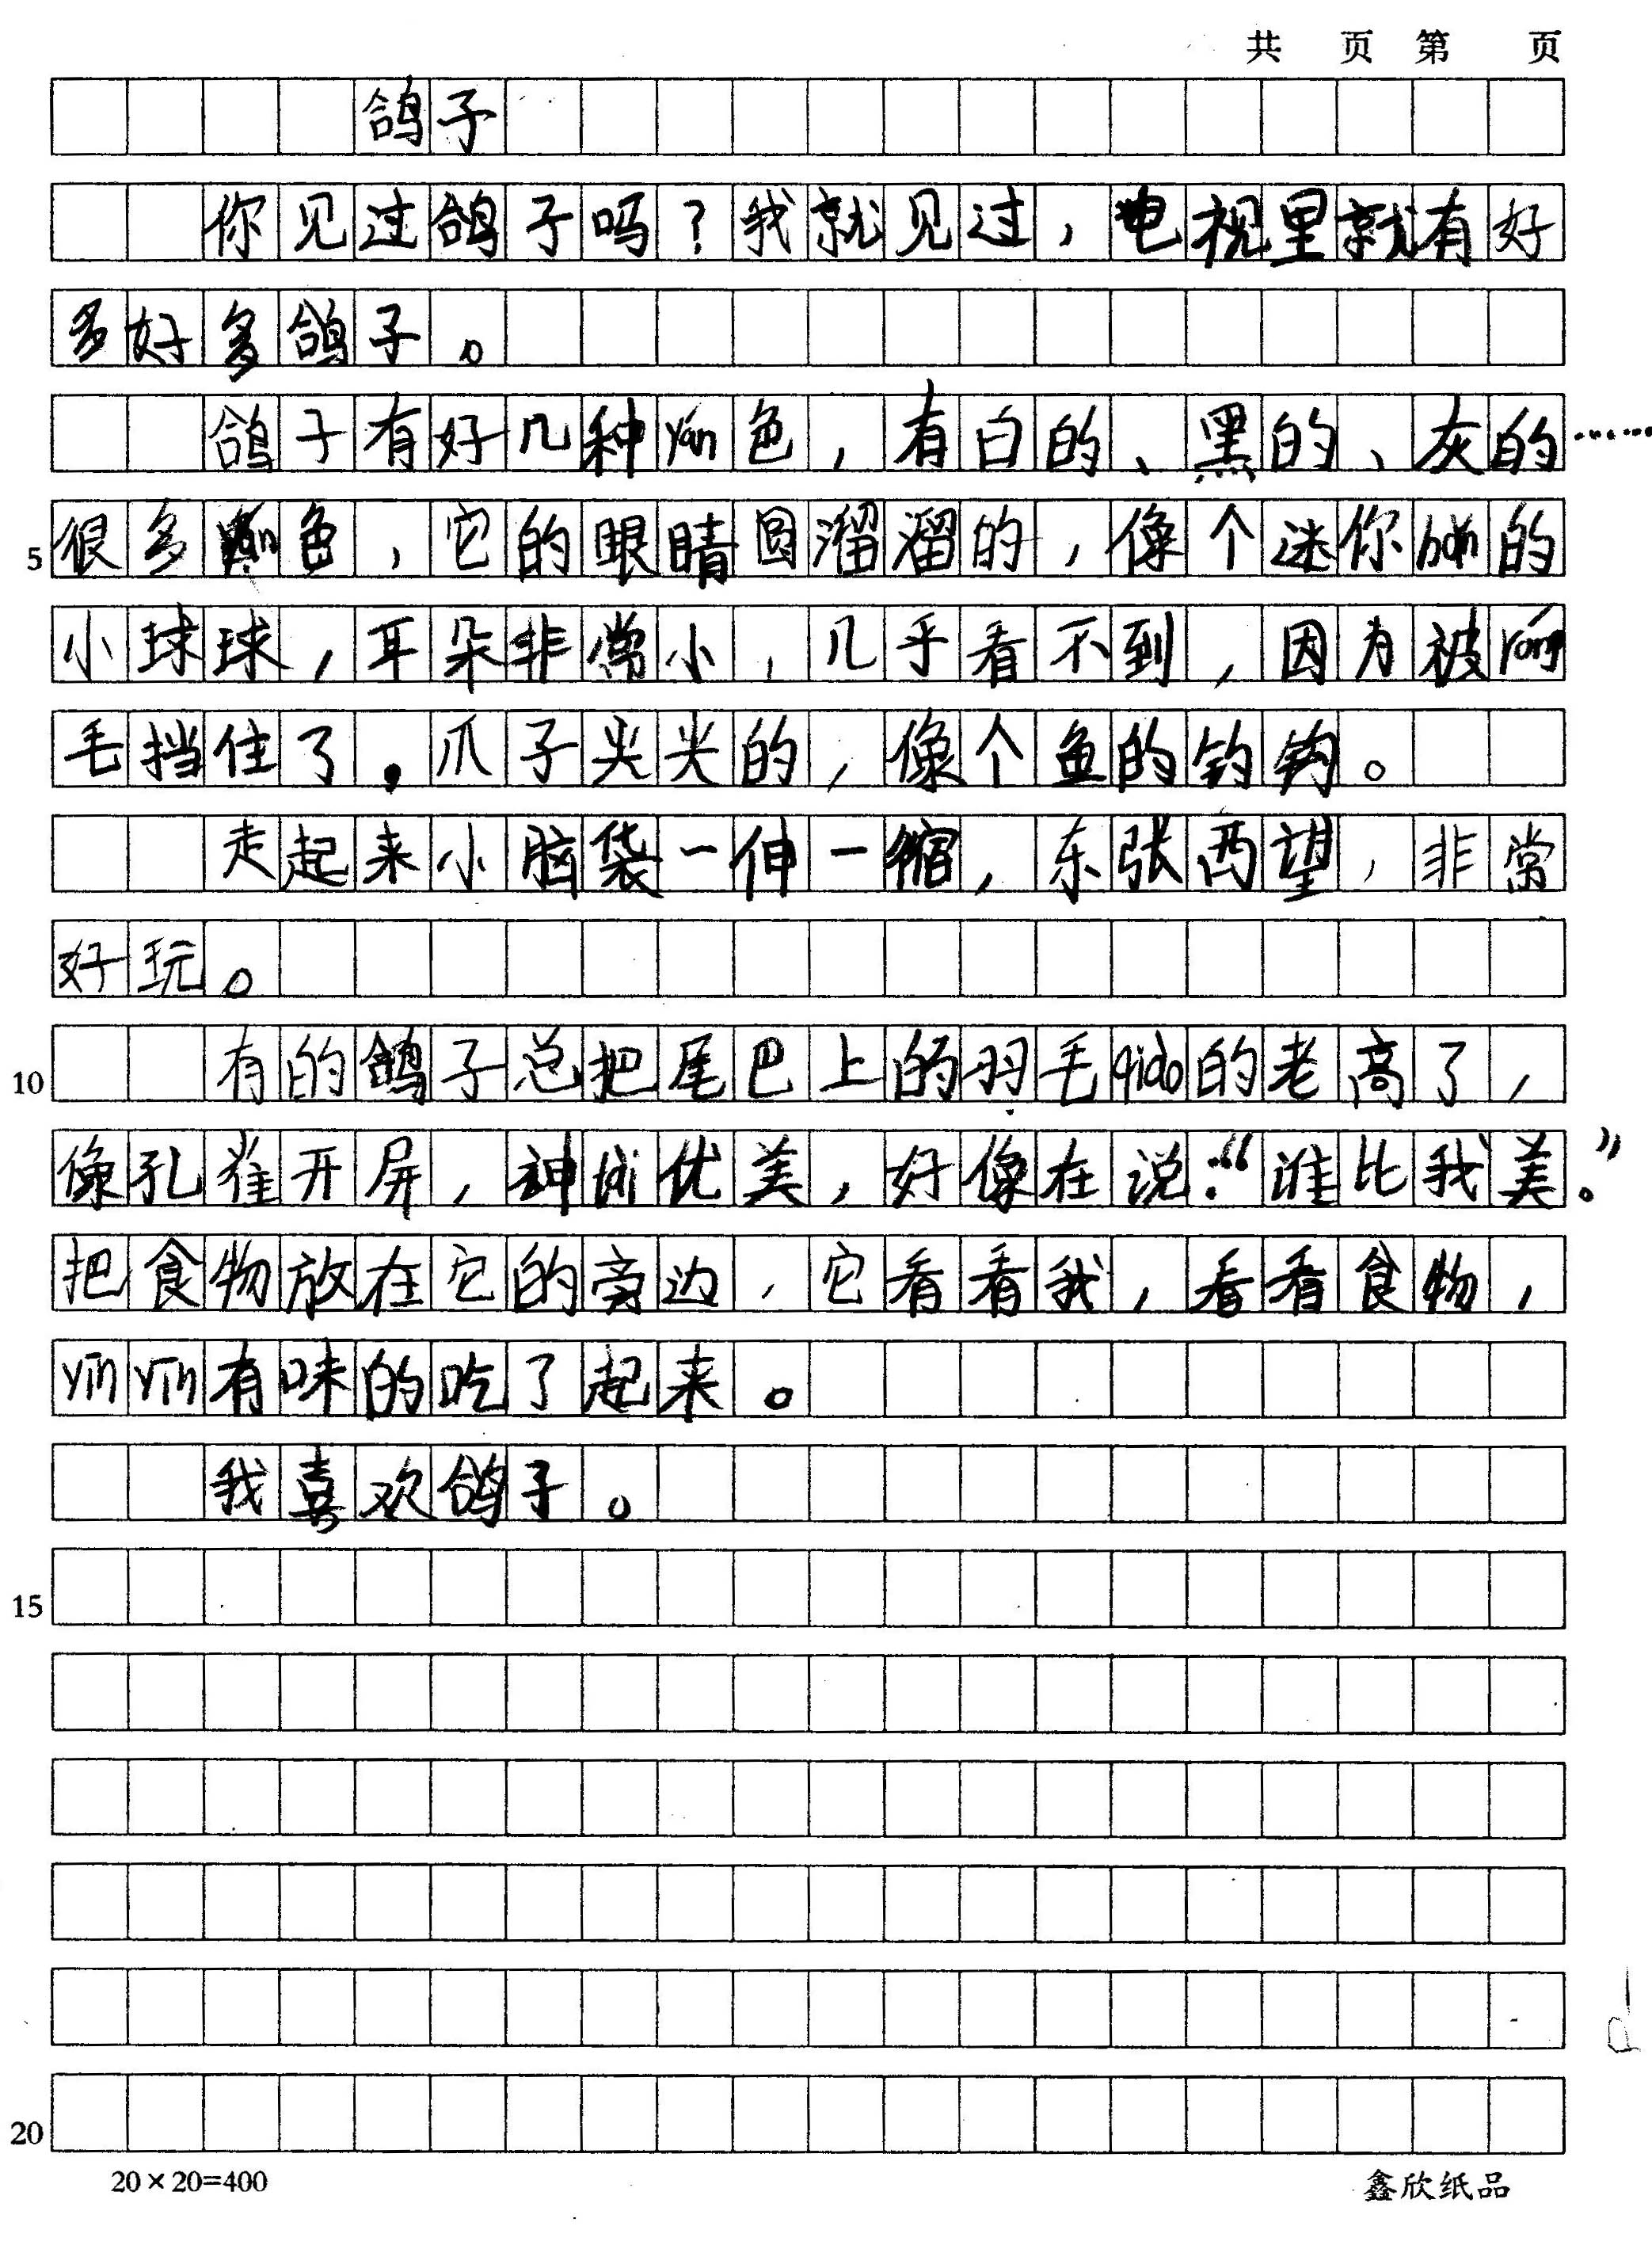 共 页 第 页
鸽子
你见过鸽子吗?我就见过,电视里就有好
多好多鸽子。
鸽子有好几种yán色,有白的、黑的、灰的……
5 很多yán色,它的眼睛圆溜溜的,像个迷你bǎn的
小球球,耳朵非常小,几乎看不到,因为被yǔng
毛挡住了,爪子尖尖的,像个鱼的钓钩。
走起来小脑袋一伸一缩,东张西望,非常
好玩。
10 有的鸽子总把尾巴上的羽毛qiào的老高了,
像孔雀开屏,神tài优美,好像在说:“谁比我美。”
把食物放在它的旁边,它看看我,看看食物,
yīn yīn有味的吃了起来。
我喜欢鸽子。
15
20
20×20=400 鑫欣纸品